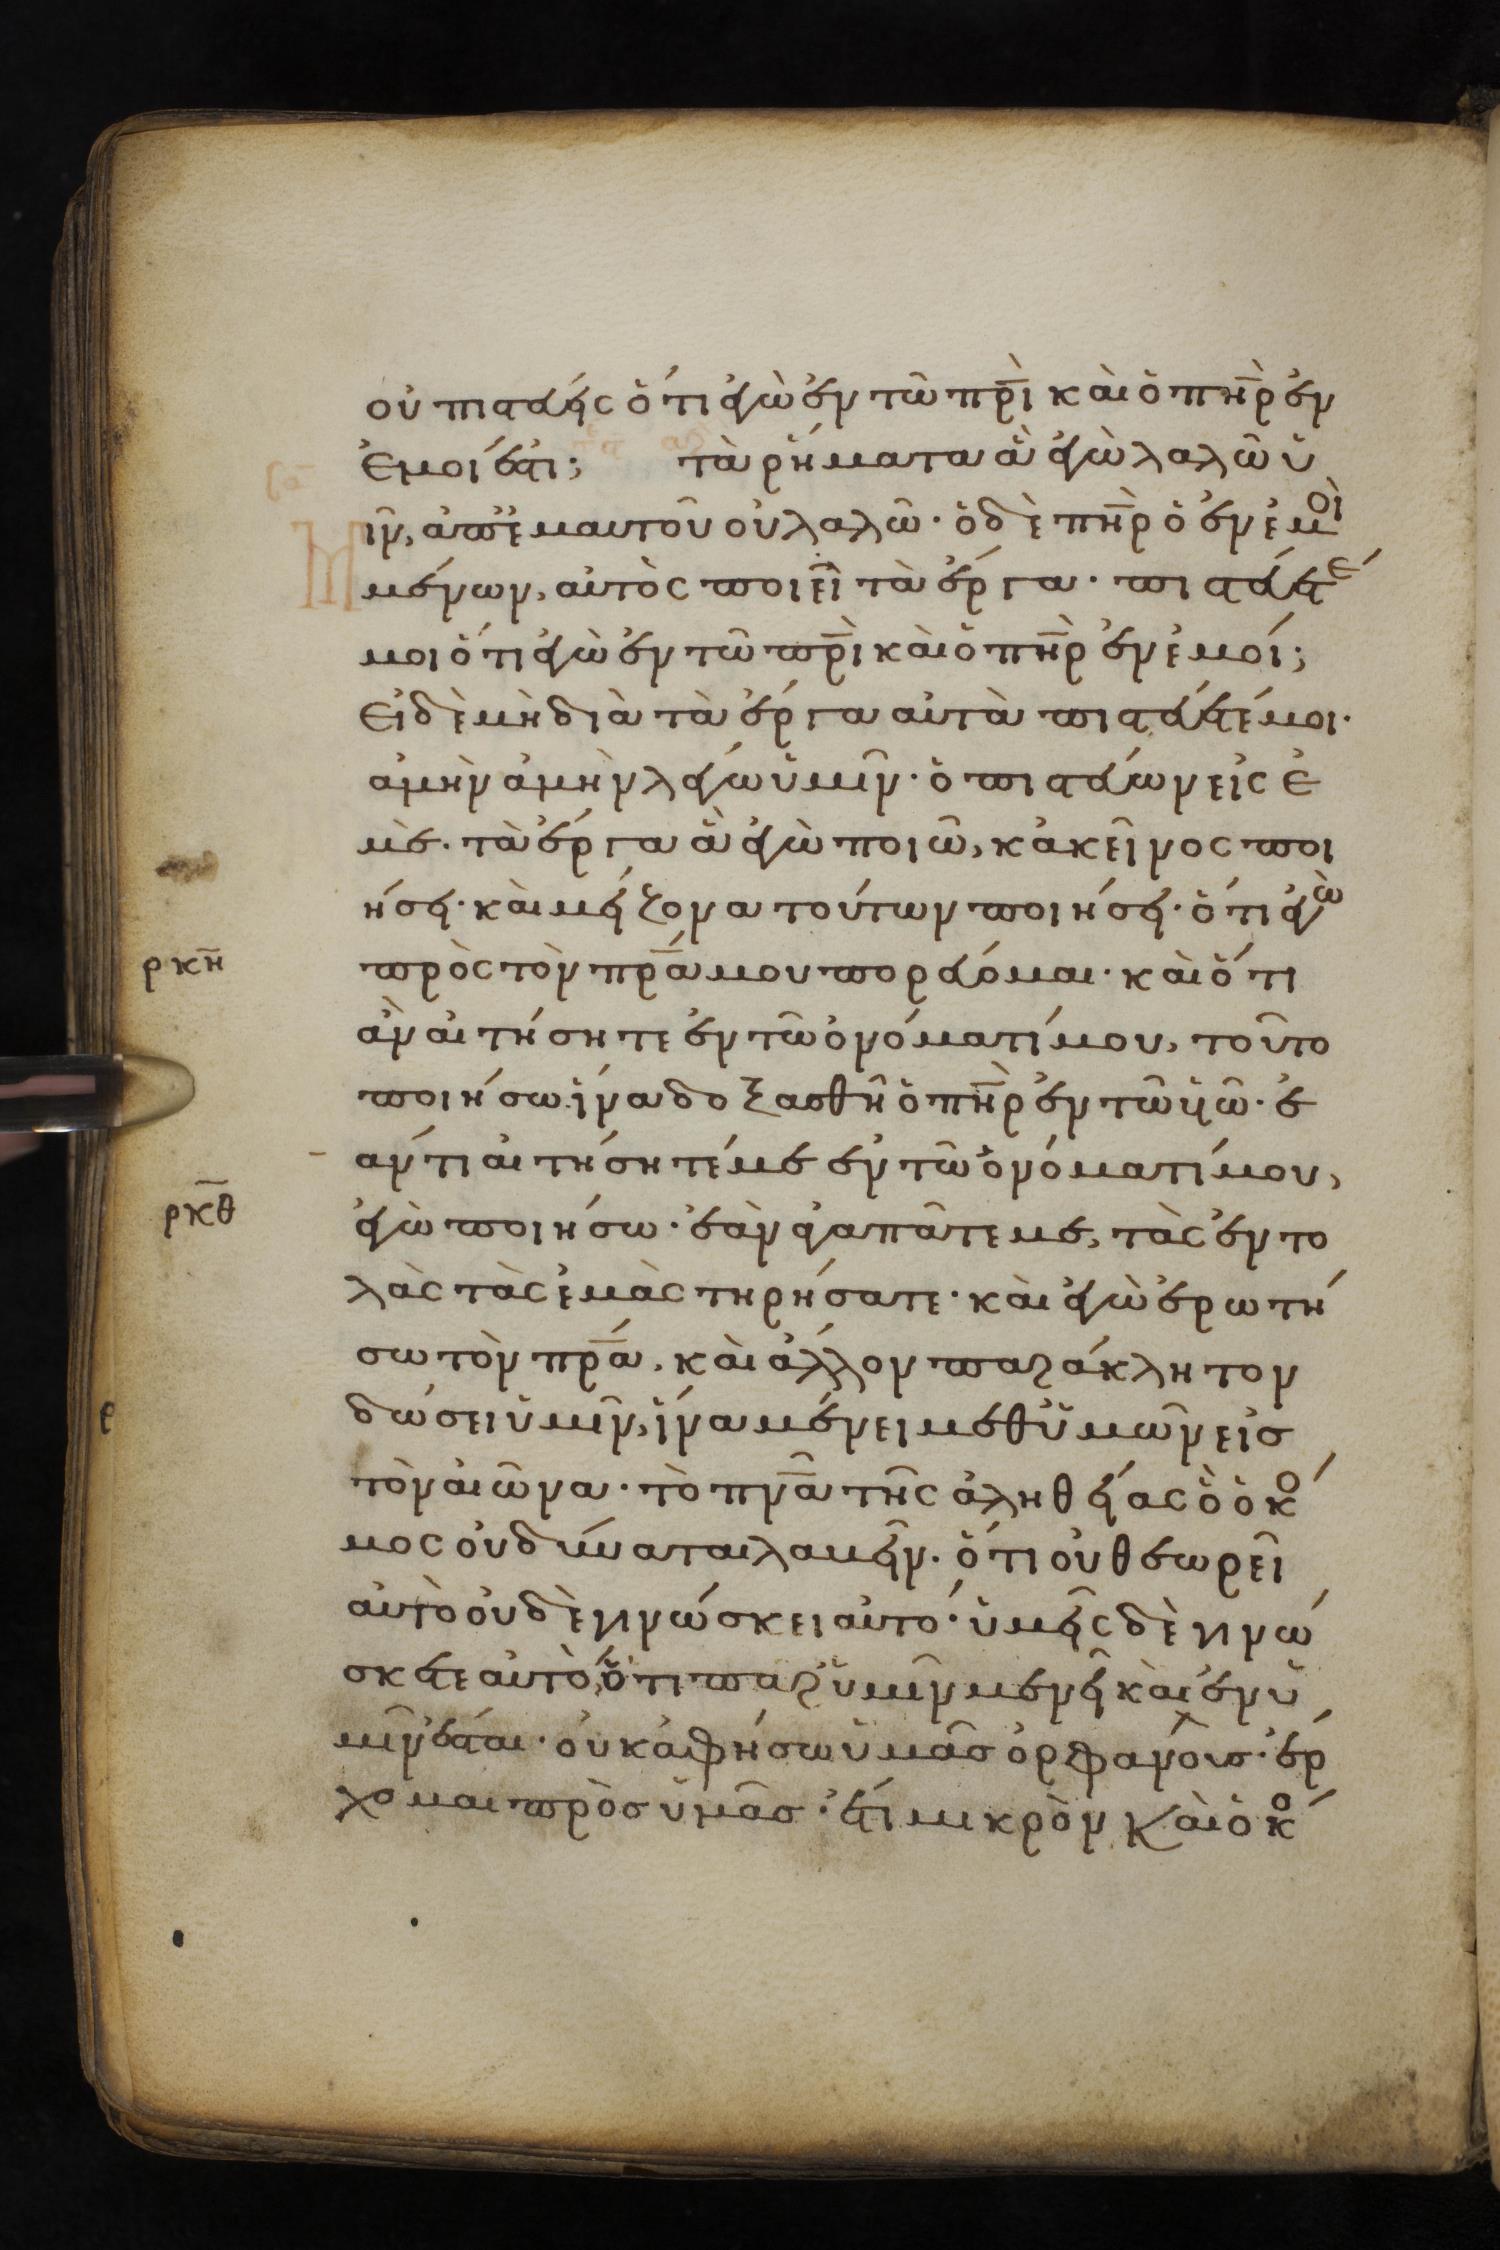 οὐ πιστεύεις ὅτι ἐγὼ ἐν τῶ πρ̅ὶ καὶ ὁ πη̅ὴρ ἐν
ἐμοί ἐστι; τὰ ῥήματα ἃ ἐγὼ λαλῶ ὑ
ϊν, ἀπ' ἐμαυτοῦ οὐ λαλῶ· ὁ δὲ πη̅ρ ὁ ἐν ἐμοὶ
μένων, αὐτὸς ποιεῖ τὰ ἔργα· πιστεύετέ
μοι ὅτι ἐγὼ ἐν τῶ πρ̅ὶ καὶ ὁ πη̅ρ ἐν ἐμοί;
εἰ δὲ μὴ διὰ τὰ ἔργα αὐτὰ πιστεύετέ μοι·
ἀμὴν ἀμὴν λέγω ὑμῖν· ὁ πιστεύων εἰς ἐ
μὲ· τὰ ἔργα ἃ ἐγὼ ποιῶ, κἀκεῖνος ποι
ήσει· καὶ μείζονα τούτων ποιήσει· ὅτι ἐγὼ
ρκη̅
πρὸς τὸν πρ̅α μου πορεύομαι· καὶ ὅτι
ἂν αἰτήσητε ἐν τῶ ὀνόματί μου, τοῦτο
ποιήσω ἵνα δοξασθῆ ὁ πη̅ρ ἐν τῶ ὑῶ· ἐ
άν τι αἰτήσητέ με ἐν τῶ ὀνόματί μου,
ρκ̅θ
ἐγὼ ποιήσω· ἐὰν ἀγαπᾶτε με, τὰς ἐντο
λὰς τὰς ἐμὰς τηρήσατε· καὶ ἐγὼ ἐρωτή
σω τὸν πρ̅α, καὶ ἄλλον παράκλητον
δώσει ὑμῖν, ἵνα μένει μεθ' ὑμῶν εἰσ
τὸν αἰῶνα· τὸ πν̅α τῆς ἀληθείας ὃ ὁ κό
μος οὐ δύναται λαβεῖν· ὅτι οὐ θεωρεῖ
αὐτὸ οὐδὲ γινώσκει αὐτό· ὑμεῖς δὲ γινώ
σκετε αὐτὸ, ὅτι παρ' ὑμῖν μένει καὶ ἐν ὑ
μῖν ἔσται· οὐκ ἀφήσω ὑμᾶσ ὀρφανούσ· ἔρ
χομαι πρὸσ ὑμᾶσ· ἔτι μικρὸν καὶ ὁ κό